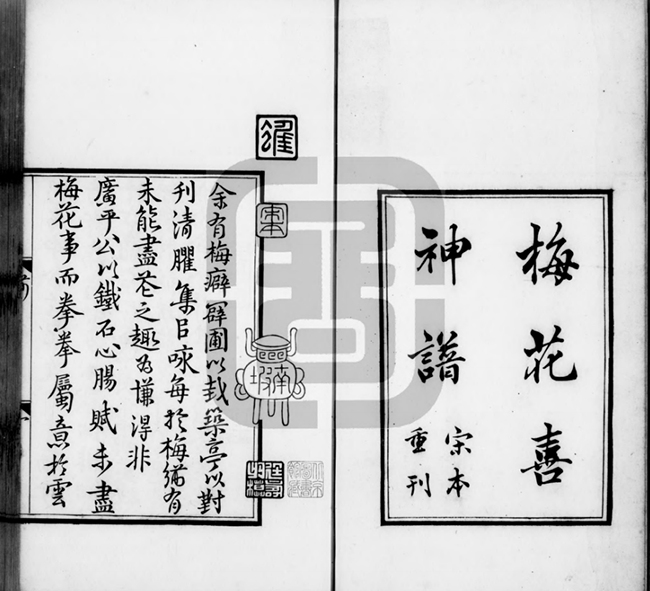 梅花喜
神譜
宋本
重刊
余有梅癖闢圃以栽築亭以對
刊清臞集以咏每於梅猶有
未能盡花之趣為慊得非
廣平公以鐵石心腸賦未盡
梅花事而拳拳屬意於雲